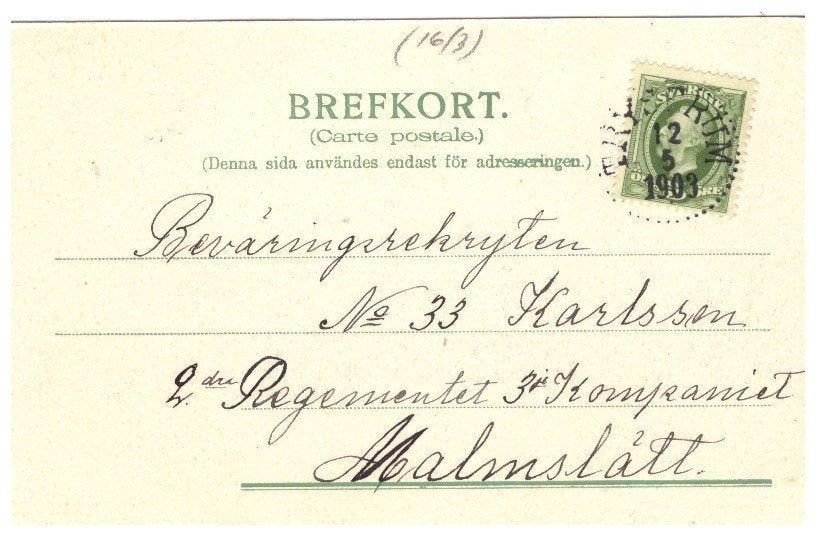 (16/3)
BREFKORT.
(Carte postale.)
(Denna sida användes endast för adresseringen.)
SVERIGE
12
5
1903
ÖRE
Beväringsrekryten
No 33 Karlsson
2dra Regementet 3je Kompaniet
Malmslätt.